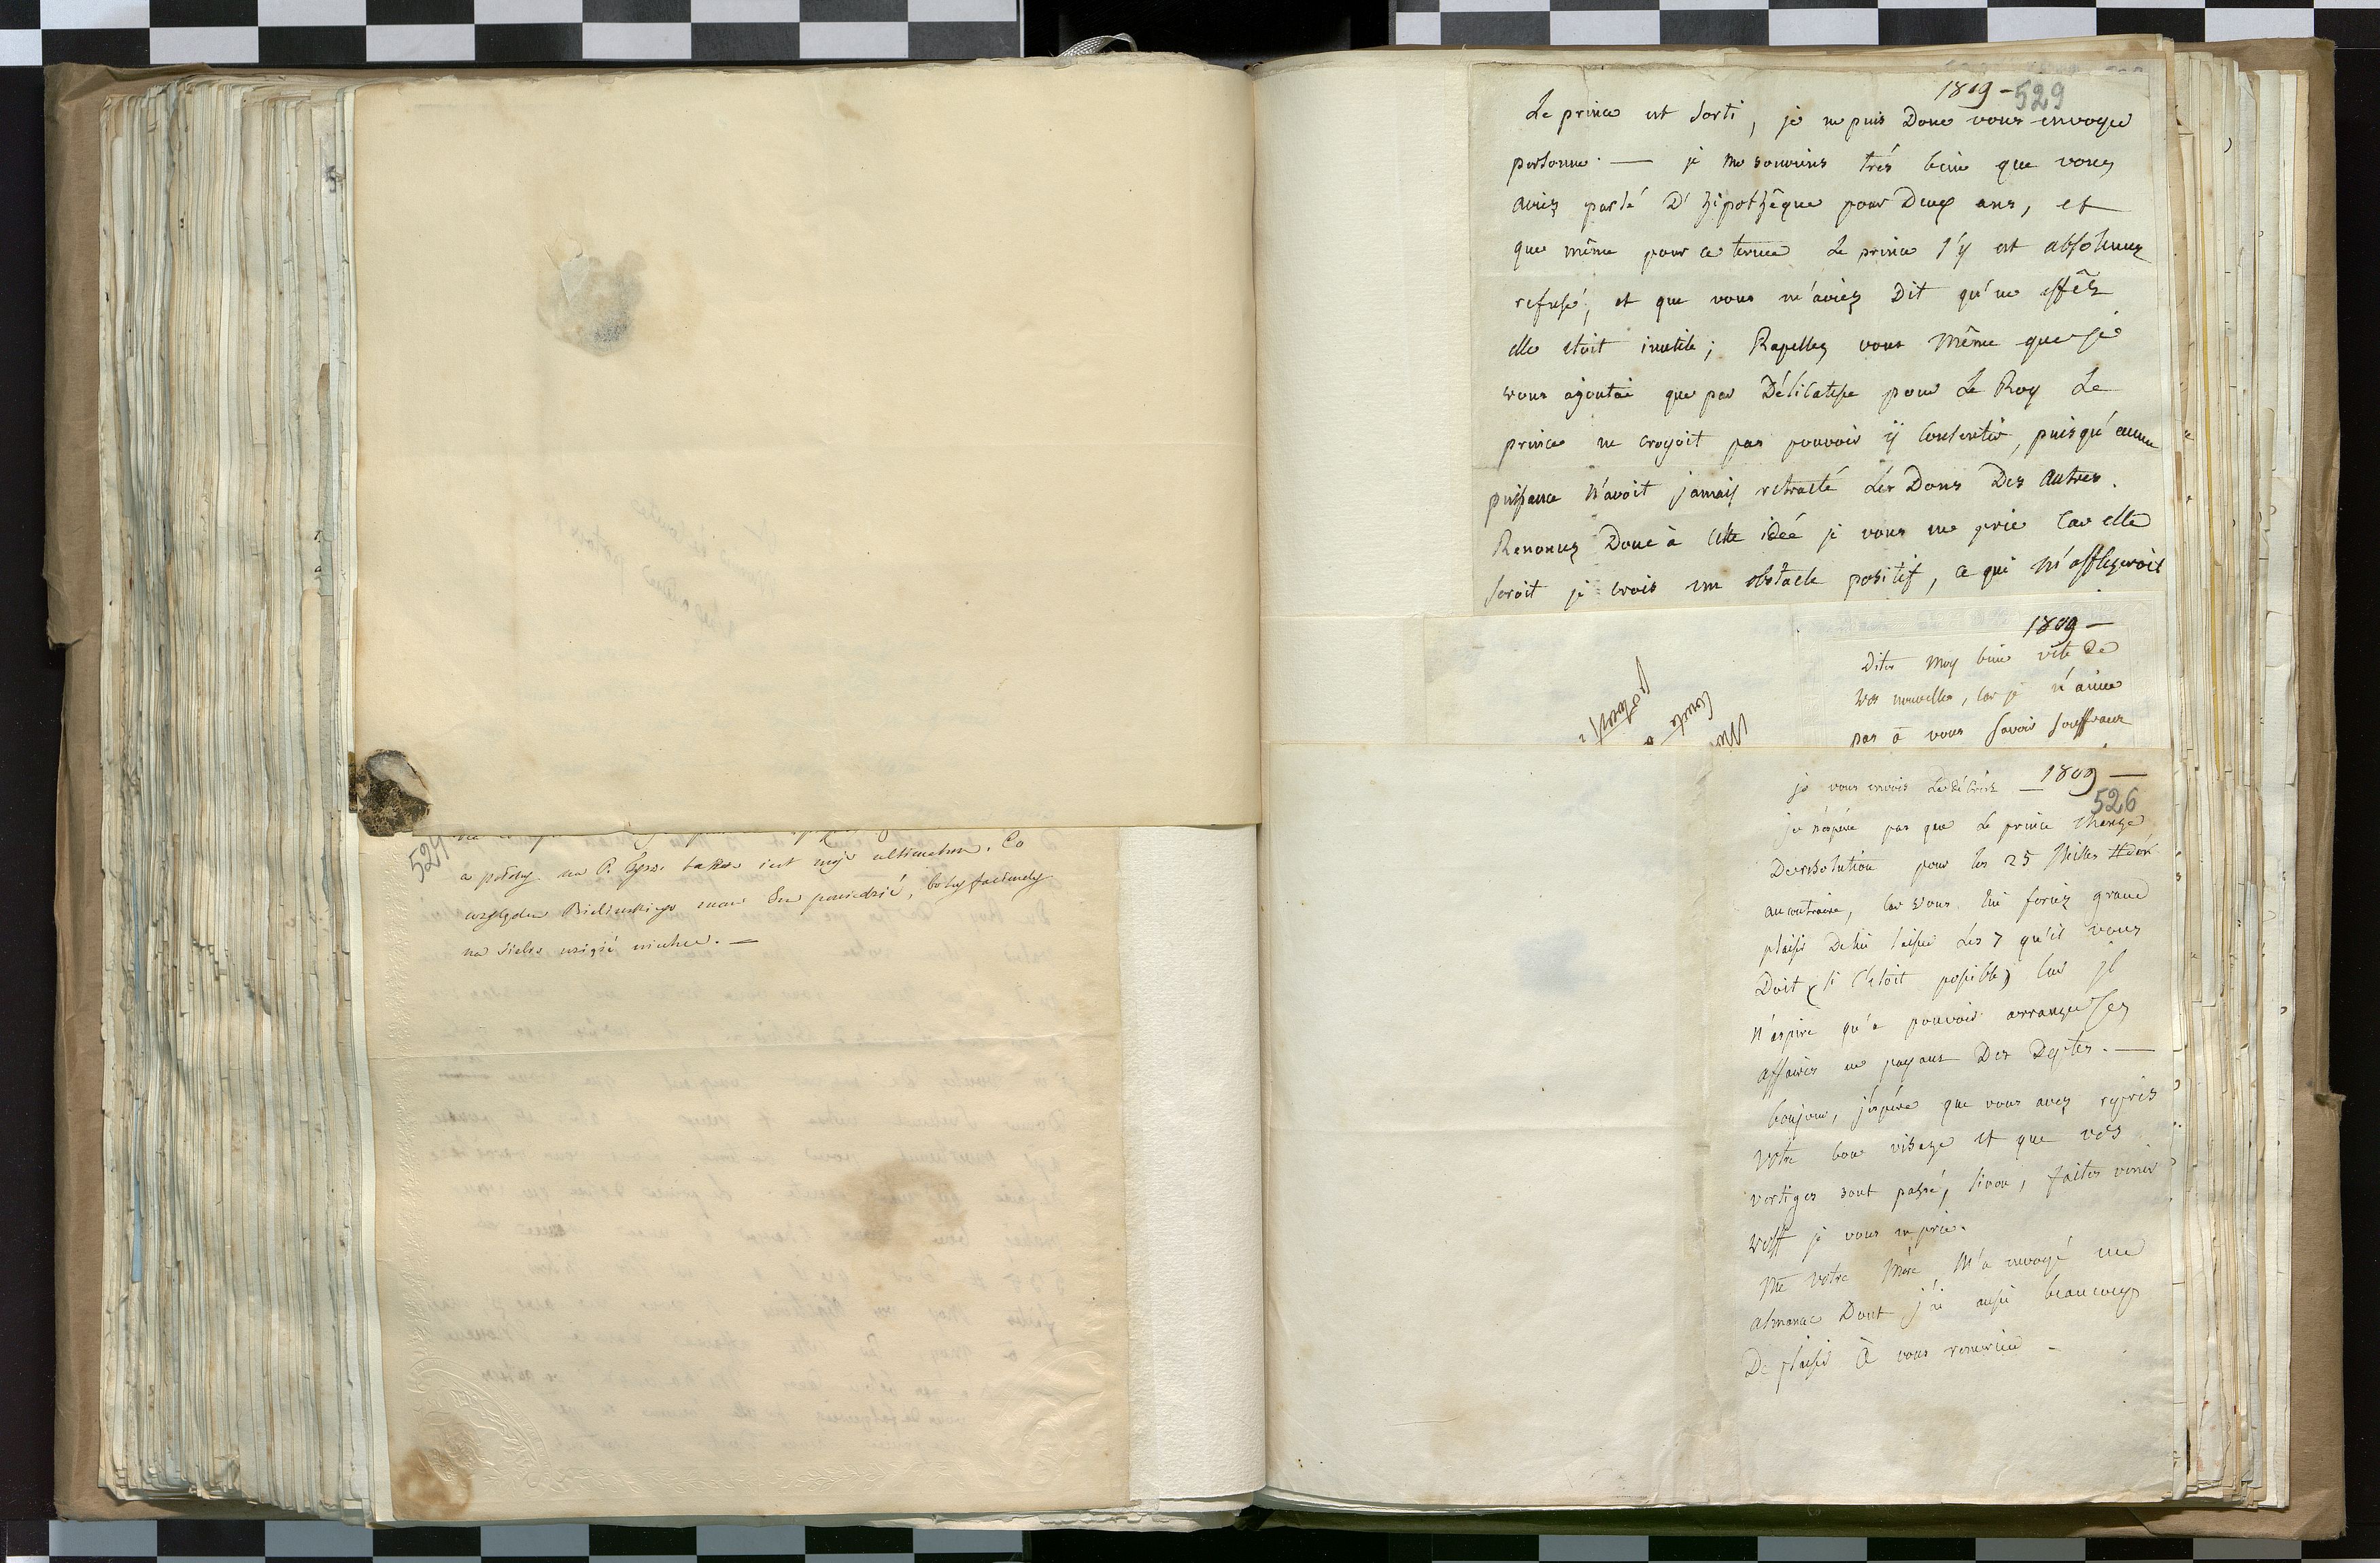 524
a połowy na P. taka jest moje ultimatum. Co
względem Bielinskiego mam powiedzieć, boby
na siebie wziąść niechce. —
1809 - 529
Le prince est sorti, je ne puis Donc vous envoyer
personne. — je me souviens trés bien que vous
aviez parlé D'hipothêque pour Deux ans, et
que même pour ce terme Le prince s'y est absolumen
refusé, et que vous m'aviez Dit qu'en effêt
elle etoit inutile; Rapellez vous même que je
vous ajoutai que par Délicatesse pour Le Roy Le
prince ne croyoit pas pouvoir ÿ Consentir, puisqu'aucune
puissance n'avoit jamais retracté Les Dons Des Autres.
Renoncez Donc à cette idée je vous en prie Car elle
seroit je crois un obstacle positif, ce qui m'affligeroit
1809 —
Dites moy bien vite De
vos nouvelles, car je n'aime
pas a vous savoir souffrant
Potocki
Comte
1809 —
526
je vous envois
je n'espére pas que Le prince change
De resolution pour les 25 Milles # d'or
au contraire, car vous lui feriez grand
plaisir De lui laisser Les 7 qu'il vous
Doit (si c'etoit possible) car jl
n'aspire qu'a pouvoir arranger ses
affaires en payant Des Deptes. —
bonjour, j'espére que vous avez repris
votre bon visage et que vos
vertiges sont passé, sinon, faites venir
Wolff je vous en prie.
Me votre Mére M'a envoyé un
almanac Dont j'ai aussi beaucoup
De plaisir à vous remercier -